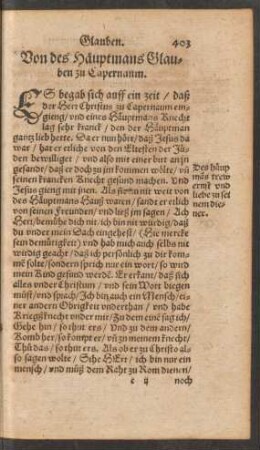 Glauben. 403
Von des Häuptmans Glau-
ben zu Capernaum.
ES begab sich auff ein zeit / daß
der Herr Christus zu Capernaum ein-
gieng / vnd eines Häuptmans Knecht
lag sehr kranck / den der Häuptman
gantz lieb hette. Da er nun hört / daß Jesus da
war / hat er etliche von den Eltesten der Jü-
den bewilliget / vnd also mit einer but an jn
gesandt / daß er doch zu jm kommen wölte / vñ
seinen krancken Knecht gesund machen. Vnd
Jesus gieng mit jnen. Als sie nun nit weit von
des Häuptmans Hauß waren / sandt er etlich
von seinen Freunden / vnd ließ jm sagen / Ach
Herr / bemühe dich nit / ich bin nit würdig / daß
du vnder mein Dach eingehest / (Hie mercke
sein demütigkeit) vnd hab mich auch selbs nit
wirdig geacht / daß ich persönlich zu dir kom-
mẽ solte / sondern sprich nur ein wort / so wird
mein Kind gesund werdẽ. Er erkant / daß sich
alles vnder Christum / vnd sein Wort biegen
müst / vnd sprach / Ich bin auch ein Mensch / ei-
ner andern Obrigkeit vnderthan / vnd habe
Kriegßknecht vnder mir / Zu dem einẽ sag ich /
Gehe hin / so thut ers / Vnd zu dem andern /
Komb her / so kompt er / vñ zu meinem knecht /
Thů das / so thut ers. Als ob er zu Christo al-
so sagen wolte / Sihe HErr / ich bin nur ein
mensch / vnd müß dem Raht zu Rom dienen /
e ij noch
Des häup
mãs trew
ernst vnd
liebe zu sei
nem die-
ner.